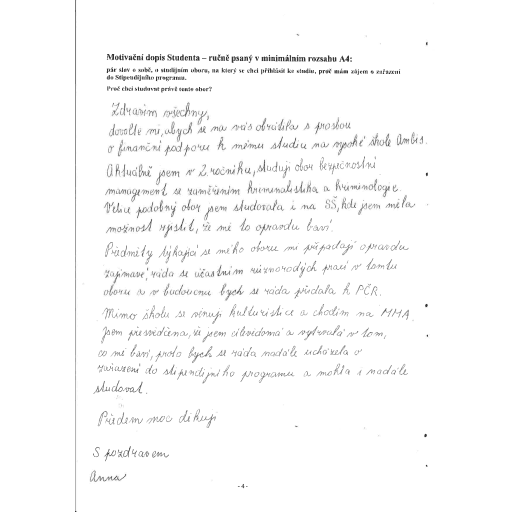 Motivační dopis Studenta – ručně psaný v minimálním rozsahu A4:
pár slov o sobě, o studijním oboru, na který se chci přihlásit ke studiu, proč mám zájem o zařazení
do Stipendijního programu.
Proč chci studovat právě tento obor?
Zdravím všechny,
dovolte mi, abych se na vás obrátila s prosbou
o finanční podporu k mému studiu na vysoké škole Ambis.
Aktuálně jsem v 2. ročníku, studuji obor bezpečnostní
management se zaměřením kriminalistika a kriminologie.
Velice podobný obor jsem studovala i na SŠ, kde jsem měla
možnost zjistit, že mě to opravdu baví.
Předměty týkající se mého oboru mi připadají opravdu
zajímavé, ráda se účastním různorodých prací v tomto
oboru a v budoucnu bych se ráda přidala k PČR.
Mimo školu se věnuji kulturistice a chodím na MMA.
Jsem přesvědčena, že jsem cílevědomá a vytrvalá v tom,
co mě baví, proto bych se ráda nadále ucházela o
zařazení do stipendijního programu a mohla i nadále
studovat.
Předem moc děkuji
S pozdravem
Anna
- 4 -